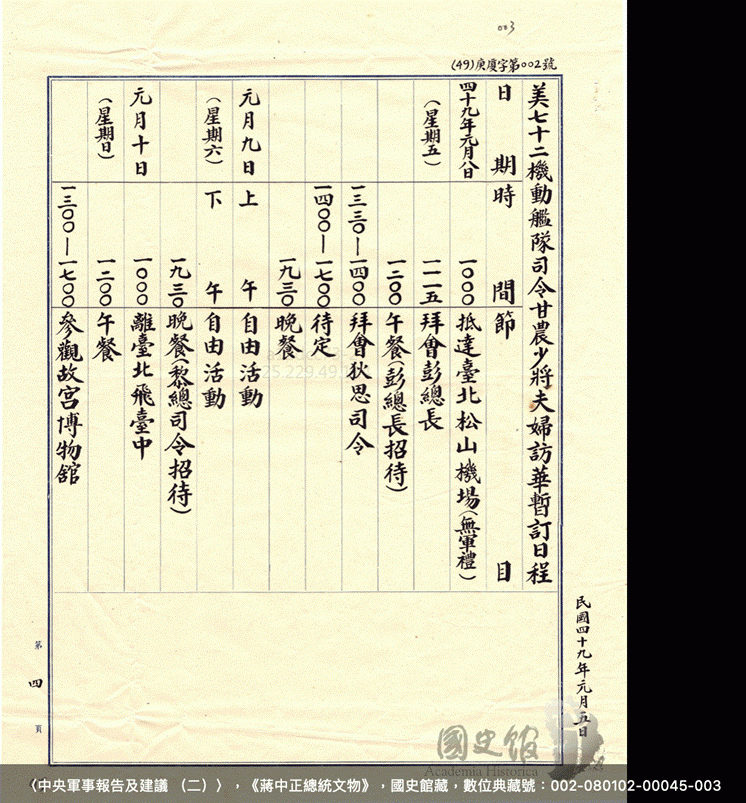 003
(49)庚廈字第002號
美七十二機動艦隊司令甘農少將夫婦訪華暫訂日程
日期 時間 節目
四十九年元月八日 一〇〇〇 抵達臺北松山機場(無軍禮)
(星期五) 一一一五 拜會彭總長
一二〇〇 午餐(彭總長招待)
一三三〇—一四〇〇 拜會狄思司令
一四〇〇—一七〇〇 待定
一九三〇 晚餐
元月九日 上午 自由活動
(星期六) 下午 自由活動
一九三〇 晚餐(黎總司令招待)
元月十日 一〇〇〇 離臺北飛臺中
(星期日) 一二〇〇 午餐
一三〇〇—一七〇〇 參觀故宮博物舘
民國四十九年元月五日
第四頁
國史館
Academia Historica
〈中央軍事報告及建議 （二）〉，《蔣中正總統文物》，國史館藏，數位典藏號：002-080102-00045-003